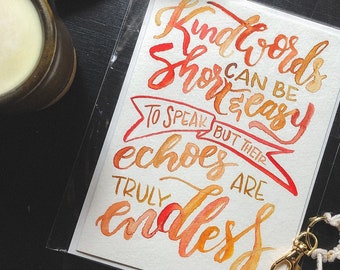 Kind words
CAN BE
Short & easy
TO SPEAK BUT THEIR
echoes ARE
TRULY
endless